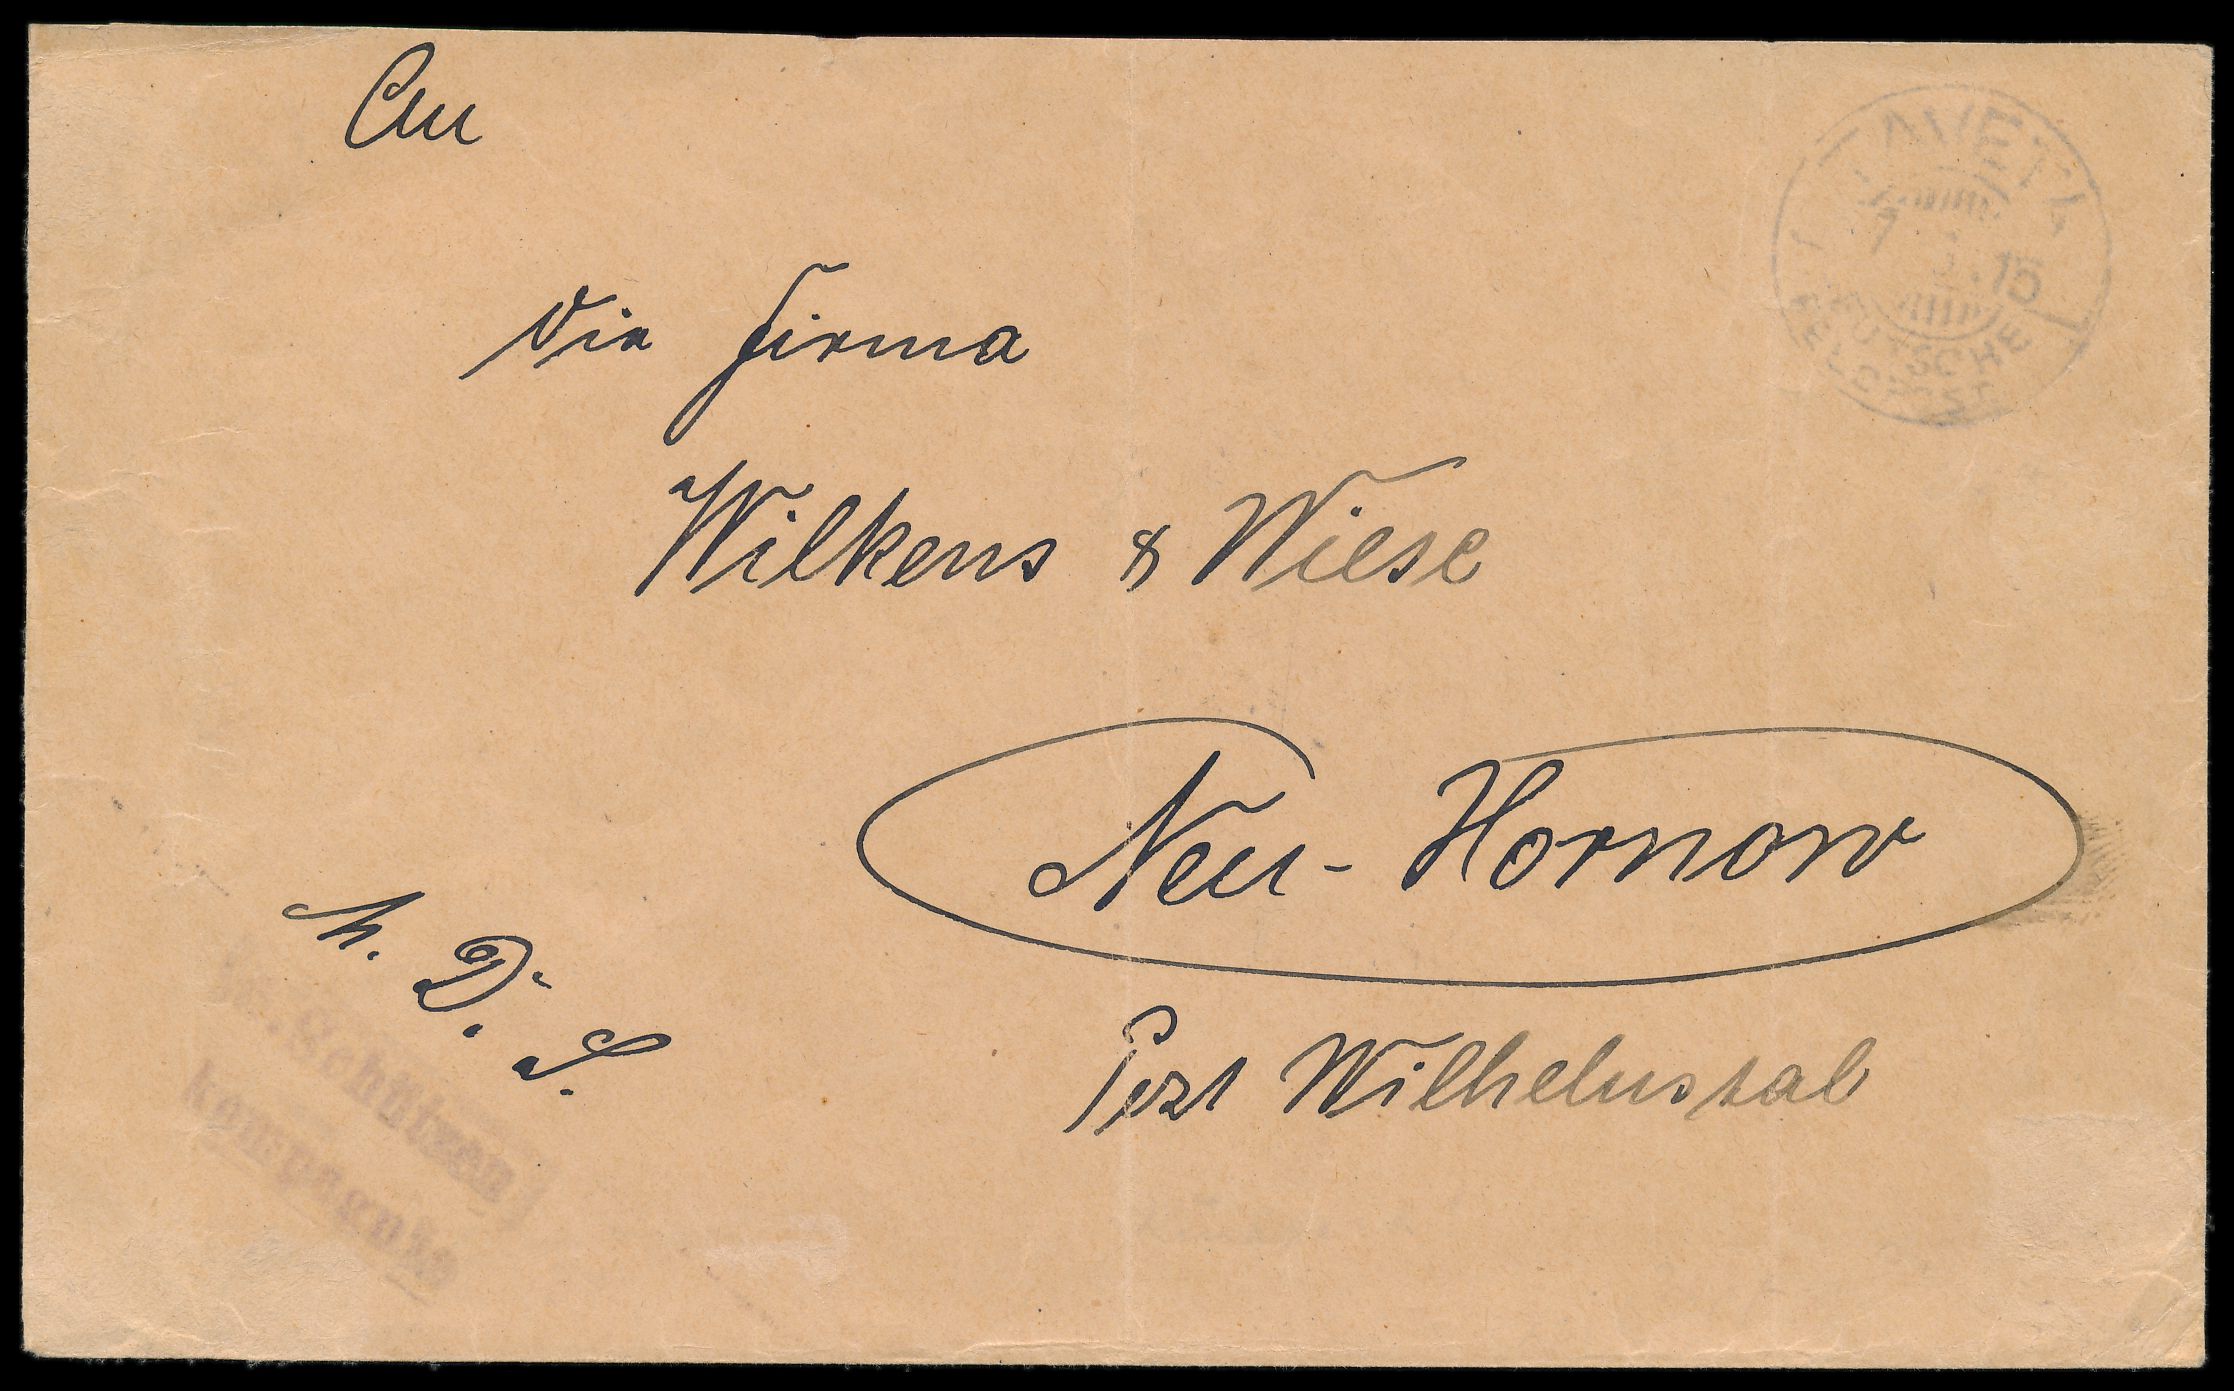 An
die Firma
Wilkens & Wiese
Neu-Hornow
Post Wilhelmstal
h. D. S.
Schützen
kompagnie
7 .15
DEUTSCHE
FELDPOST